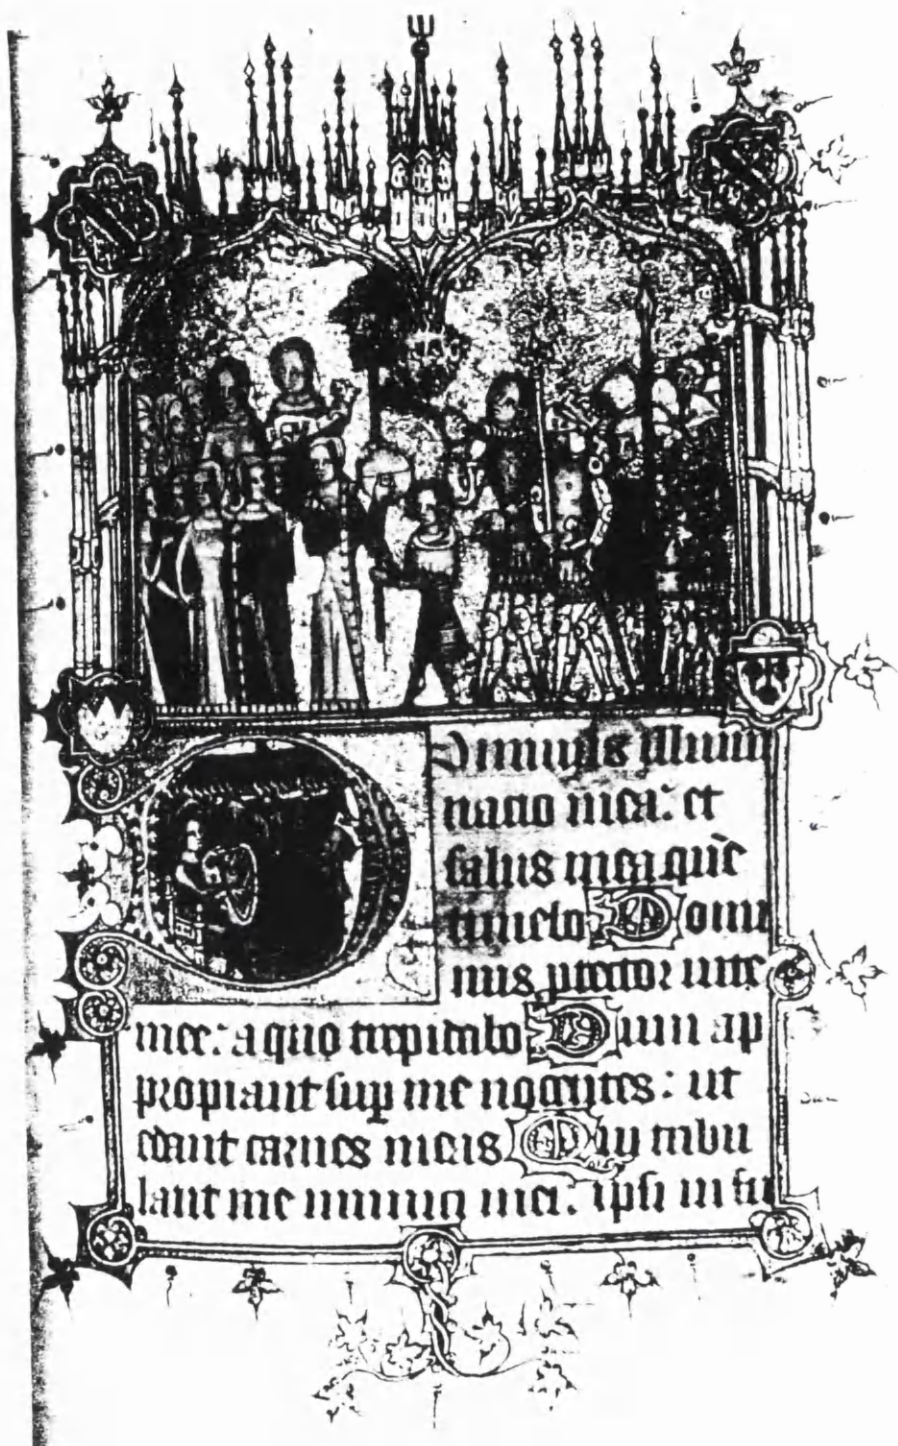 Dominus illumi
nacio mea: et
salus mea quē
timebo Domi
nus ꝓtector vite
mee: a quo trepidabo Dum ap
propiant suꝑ me nocentes: ut
edant carnes meas Qui tribu
lant me inimici mei: ipsi infir